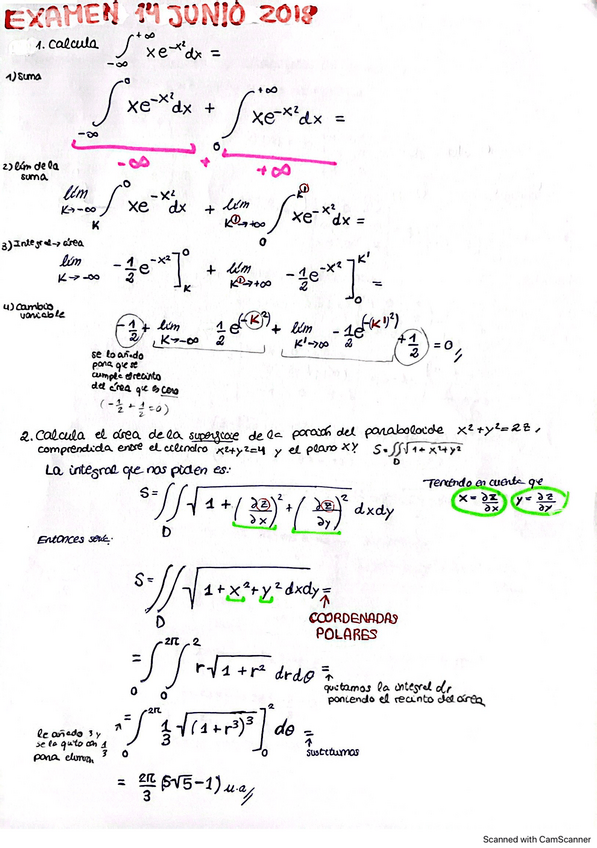 EXAMEN 14 JUNIO 2018
1. Calcula ∫_{-∞}^{+∞} xe^{-x²}dx =
1) Suma
∫_{-∞}^{0} xe^{-x²}dx + ∫_{0}^{+∞} xe^{-x²}dx =
-∞ + +∞
2) lím de la suma
lím_{K→-∞} ∫_{K}^{0} xe^{-x²}dx + lím_{K'→+∞} ∫_{0}^{K'} xe^{-x²}dx =
3) Integral → área
lím_{K→-∞} -1/2 e^{-x²}]_{K}^{0} + lím_{K'→+∞} -1/2 e^{-x²}]_{0}^{K'} =
4) Cambio variable
-1/2 + lím_{K→-∞} 1/2 e^{(-K²)} + lím_{K'→∞} -1/2 e^{(-(K')²)} + 1/2 = 0,,
se lo añado
para que se
cumple el recinto
del área que es cero
(-1/2 + 1/2 = 0)
2. Calcula el área de la superficie de la porción del paraboloide x²+y²=2z,
comprendida entre el cilindro x²+y²=4 y el plano XY S=∬_D √(1+x²+y²)
La integral que nos piden es:
Teniendo en cuenta que
x = ∂z/∂x y = ∂z/∂y
S = ∬_D √(1 + (∂z/∂x)² + (∂z/∂y)²) dxdy
Entonces sería:
S = ∬_D √(1 + x² + y²) dxdy =
↑
COORDENADAS
POLARES
= ∫_{0}^{2π} ∫_{0}^{2} r√(1+r²) drdθ =
↑
quitamos la integral dr
poniendo el recinto del área
le añado 3 y
se lo quito con 1/3
para
= ∫_{0}^{2π} 1/3 √((1+r³)³)]_{0}^{2} dθ =
↑
sustituimos
= 2π/3 (5√5 - 1) u.a,,
Scanned with CamScanner